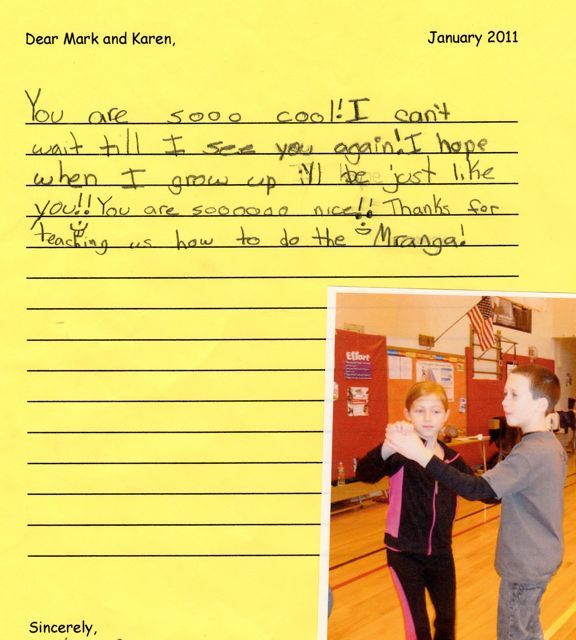 Dear Mark and Karen, January 2011
You are sooo cool! I can't
wait till I see you again! I hope
when I grow up i'll be just like
you!! You are soooooo nice!! Thanks for
teaching us how to do the Mranga!
Effort
Sincerely,